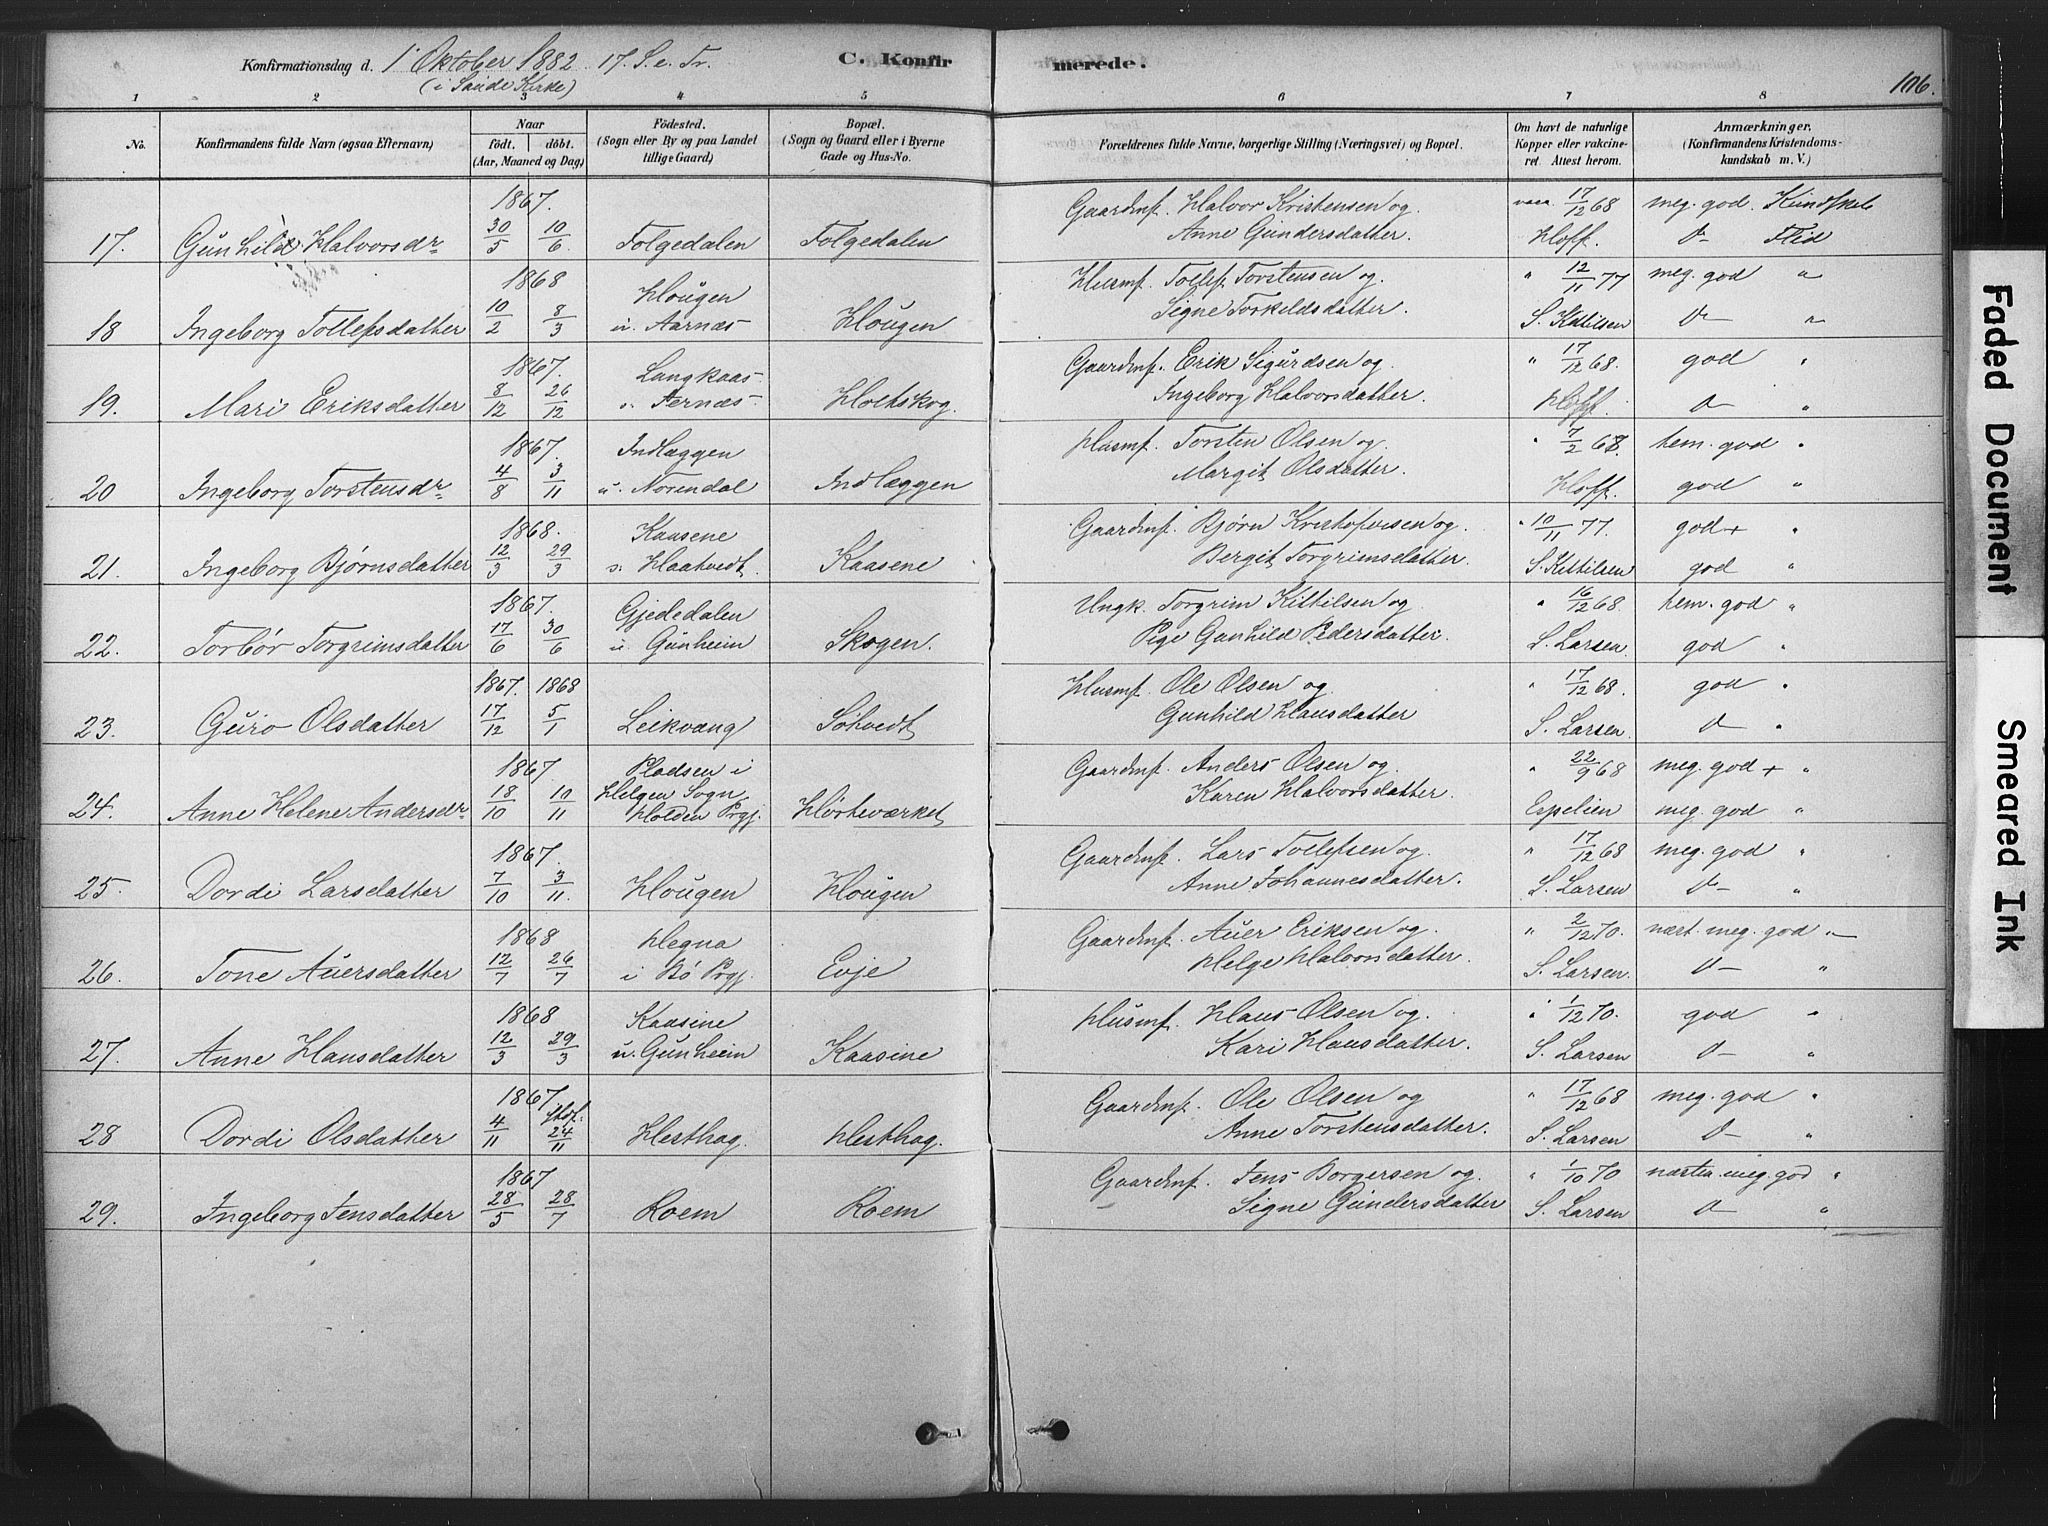 Konfirmationsdag d. 1' Oktober 1882 17. S. e. Tr. C. Konfirmerede. 106.
(i Saude Kirke)
1 2 3 4 5 6 7 8
No. Konfirmandens fulde Navn (ogsaa Efternavn) Naar født. døbt. (Aar, Maaned og Dag) Fødested. (Sogn eller By og paa Landet tillige Gaard) Bopæl. (Sogn og Gaard eller i Byerne Gade og Hus-No. Forældrenes fulde Navne, borgerlige Stilling (Næringsvei) og Bopæl. Om havt de naturlige Kopper eller vakcineret. Attest herom. Anmærkninger. (Konfirmandens Kristendomskundskab m. V.)
1867. Gaardmf. Halvor Kristensen og vacc. 17/12 68 meg. god. Kundskab
17. Gunhild Halvorsdr 30/5 10/6 Folgedalen Folgedalen Anne Gundersdatter. Hoff. do Flid
1868 Hougen Husmf. Tollef Torstensen og " 12/11 77 meg. god "
18 Ingeborg Tollefsdatter 10/2 8/3 u. Aarnæs Hougen Signe Torkildsdatter. S. Kittilsen do "
1867. Langkaas Gaardmf. Erik Sigurdsen og " 17/12 68. god "
19. Mari Eriksdatter 8/12 26/12 u. Aarnæs Holtskog. Ingeborg Halvorsdatter. Hoff. do "
1867. Indlæggen Husmf. Torsten Olsen og " 7/2 68 hem. god "
20 Ingeborg Torstensdr 4/8 3/11 u. Norendal Indlæggen Margit Olsdatter. Hoff. god "
1868. Kaasene Gaardmf. Bjørn Kristofersen og " 10/11 77. god + "
21. Ingeborg Bjørnsdatter 12/3 29/3 u. Haatvedt. Kaasene Bergit Torgrimsdatter. S. Kittilsen god "
1867. Gjededalen Ungk. Torgrim Kittilsen og " 16/12 68. hem. god "
22. Torbør Torgrimsdatter 17/6 30/6 u. Gunheim Skogen. Pige Gunhild Pedersdatter. S. Larsen god "
1867. 1868 Husmf. Ole Olsen og " 17/12 68. god "
23. Guro Olsdatter 17/12 5/1 Leikvang Søtvedt Gunhild Hansdatter S. Larsen. do "
1867 Pladsen i Gaardmf. Anders Olsen og " 22/9 68 meg. god + "
24. Anne Helene Andersdr 18/10 10/11 Helgen Sogn, Holden Prgj. Hørteværket Karen Halvorsdatter. Espelien meg. god "
1867. Gaardmf. Lars Tollefsen og " 17/12 68 meg. god "
25. Dordi Larsdatter 7/10 3/11. Hougen Hougen Anne Johannesdatter. S. Larsen do "
1868 Hegna Gaardmf. Auer Eriksen og " 2/12 70. næst. meg. god "
26. Tone Auersdatter 12/7 26/7 i Bø Prgj. Evje Helge Halvorsdatter. S. Larsen. do "
1868 Kaasine Husmf. Hans Olsen og " 1/12 70. god "
27. Anne Hansdatter 12/3 29/3 u. Gunheim Kaasine Kari Hansdatter. S. Larsen do "
1867 Gaardmf. Ole Olsen og " 17/12 68 meg. god "
28 Dordi Olsdatter 4/11 24/11 Hesthag. Hesthag. Anne Torstensdatter. S. Larsen do "
1867 Gaardmf. Jens Borgersen og " 1/10 70 næsten meg. god "
29. Ingeborg Jensdatter 28/5 28/7 Roem Roem Signe Gundersdatter S. Larsen do "
Faded Document
Smeared Ink